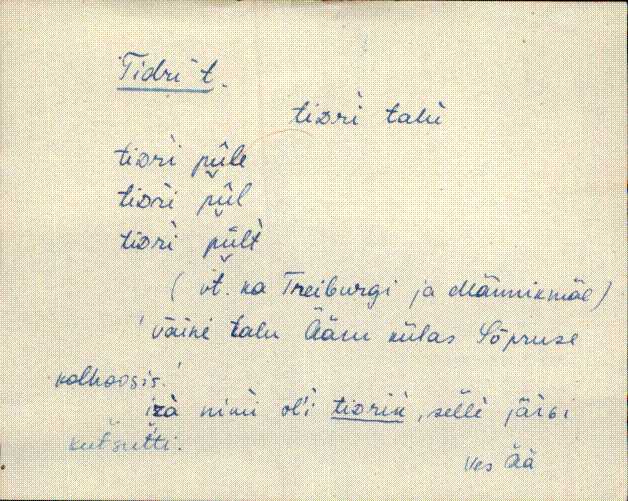 Tidri t.
tiᴅri talu
tiᴅri pǖle
tiᴅri pǖl
tiᴅri pǖlt
(vt. ka Treiburgi ja Männikmäe)
'väike talu Ääru külas Sõpruse
kolhoosis.'
izà nimi ol'i tiᴅrik, selle järɢi
kut'sutti.
Ves Ää